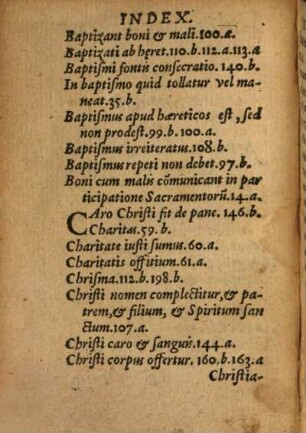 INDEX.
Baptizant boni & mali.100.a.
Baptizati ab heret.110.b.112.a.113.a
Baptismi fontis consecratio.140.b.
In baptismo quid tollatur vel ma
neat.35.b.
Baptismus apud hæreticos est, sed
non prodest.99.b.100.a.
Baptismus irreiteratus.108.b.
Baptismus repeti non debet.97.b.
Boni cum malis cõmunicant in par
ticipatione Sacramentorũ.14.a.
CAro Christi fit de pane.146.b.
Charitas.59.b.
Charitate iusti sumus.60.a.
Charitatis offitium.61.a.
Chrisma.112.b.198.b.
Christi nomen complectitur,& pa
trem,& filium, & Spiritum san
ctum.107.a.
Christi caro & sanguis.144.a.
Christi corpus offertur. 160.b.163.a
Christia-